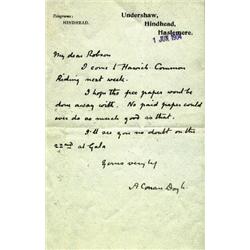 Telegrams:
HINDHEAD.
Undershaw,
Hindhead,
Haslemere.
1 JUN 1904
My dear Robson
I come to Hawick Common
Riding next week.
I hope the free paper wont be
done away with. No paid paper could
ever do as much good as that.
I'll see you no doubt on the
22nd at Gala
Yours very truly
A Conan Doyle.